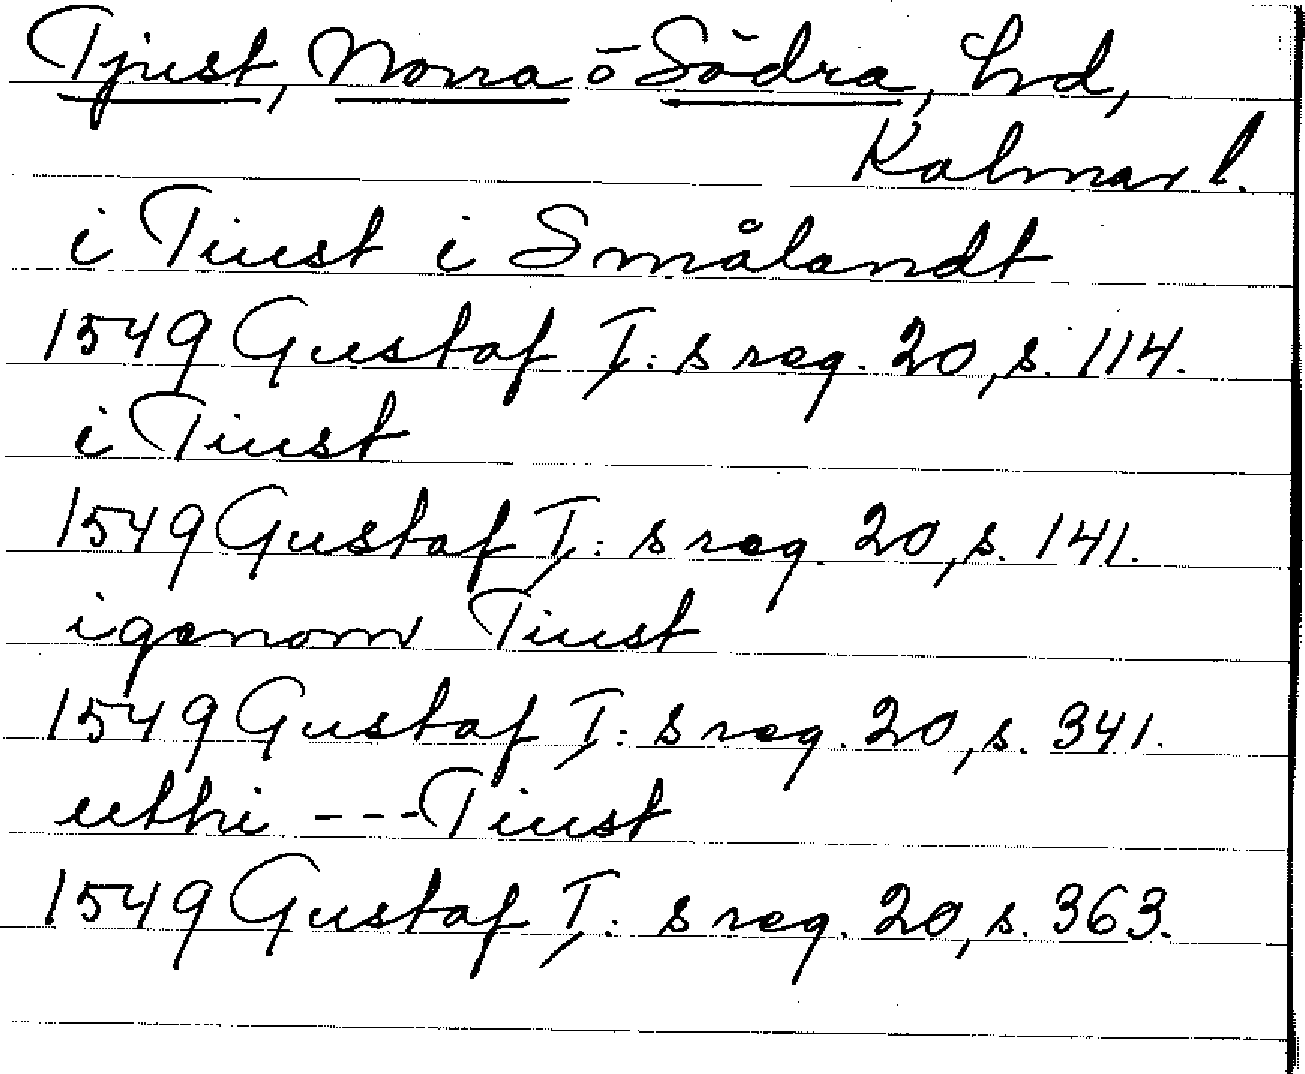 Tjust, Norra o Södra, hd,
Kalmar l.
i Tiust i Smålandt
1549 Gustaf I: s reg. 20, s. 114.
i Tiust
1549 Gustaf I: s reg. 20, s. 141.
igenom Tiust
1549 Gustaf I: s reg. 20, s. 341.
utthi --- Tiust
1549 Gustaf I: s reg. 20, s. 363.